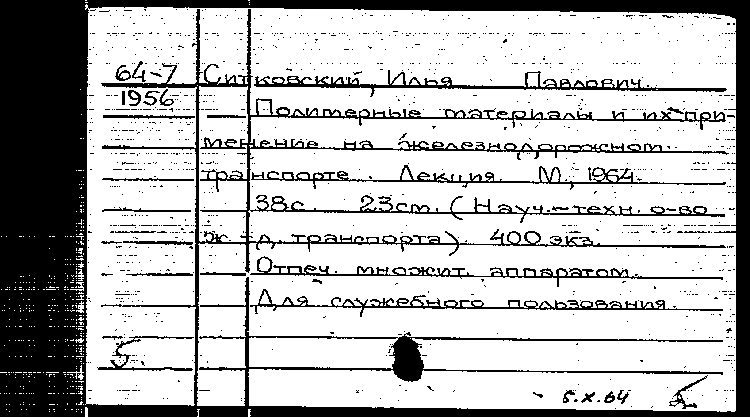 64-7 Ситковский, Илья Павлович
1956 Полимерные материалы и их при-
менение на железнодорожном
транспорте. Лекция. М., 1964.
38с. 23см. (Науч.-техн. о-во
ж.-д. транспорта). 400 экз.
Отпеч. множит. аппаратом.
Для служебного пользования.
5.
5.X.64